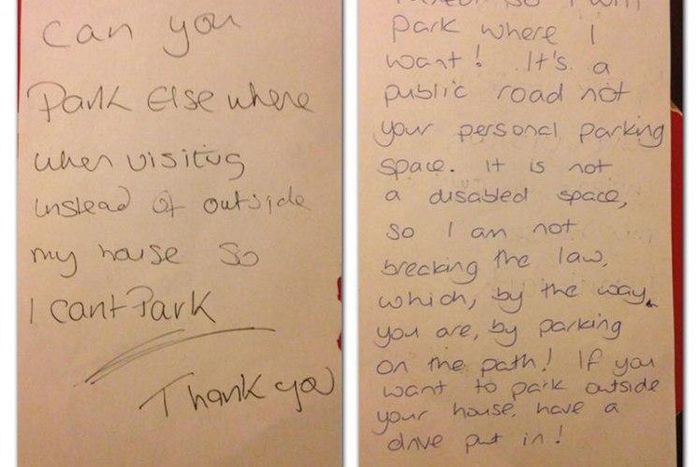 can you
Park Elsewhere
when visitng
instead of outside
my house so
I cant Park
Thank you
so I will
park where I
want! It's a
public road not
your personal parking
space. It is not
a disabled space,
so I am not
breacking the law,
which, by the way,
you are, by parking
on the path! If you
want to park outside
your house, have a
drive put in!